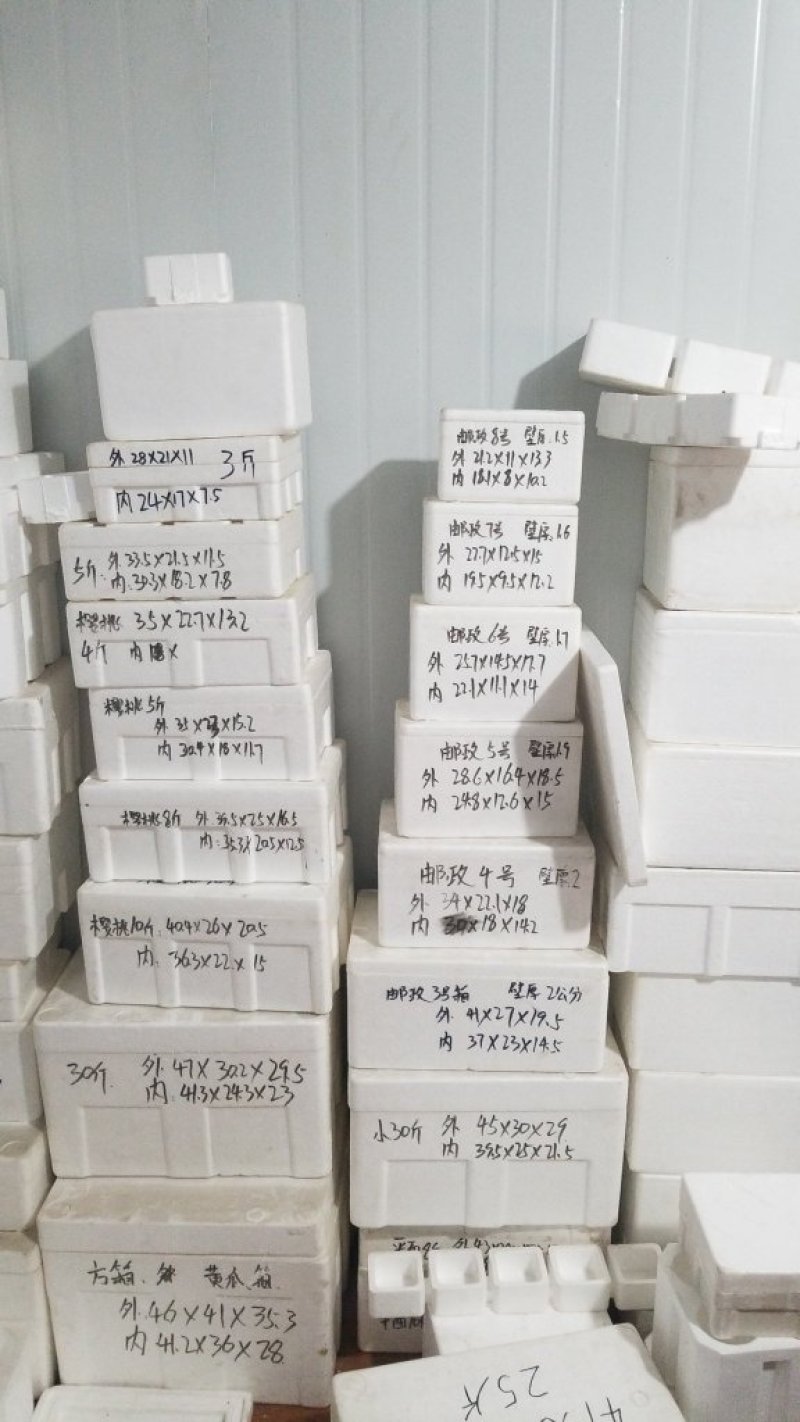 外 28X21X11 3斤
内 24X17X7.5
5斤 外 33.5X21.5X11.5
内 30.3X18.2X7.8
樱桃 35X22.7X13.2
4斤 内
樱桃5斤
内 30.4X18X11.7
樱桃8斤 外 39.5X25X16.5
内: 35.3X20.5X12.5
樱桃10斤 40.4X26X20.5
内. 36.3X22X15
30斤 外 47X30.2X29.5
内 41.3X24.3X23
方箱、 黄瓜箱
外.46X41X35.3
内 41.2X36X28
邮政8号 壁厚1.5
外 21.2X11X13.3
内 18.1X8X10.2
邮政7号 壁厚1.6
外 22.7X12.5X15
内 19.5X9.5X12.2
邮政6号 壁厚1.7
外 25.7X14.5X17.7
内 22.1X11.1X14
邮政5号 壁厚1.9
外 28.6X16.4X18.5
内 24.8X12.6X15
邮政4号 壁厚2
外 34X22.1X18
内 30X18X14.2
邮政3号箱 壁厚2公分
外 41X27X19.5
内 37X23X14.5
小30斤 外 45X30X29
内 39.5X25X21.5